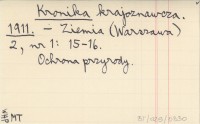 Kronika krajoznawcza.
1911. – Ziemia (Warszawa)
2, nr 1: 15-16.
Ochrona przyrody.
MT